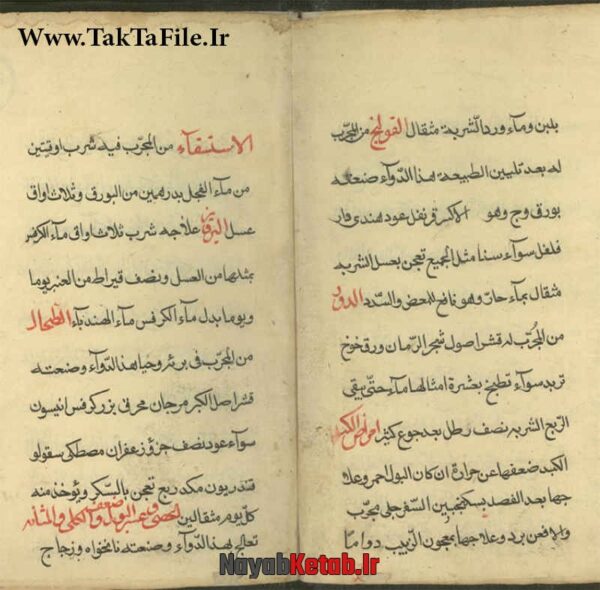 Www.TakTaFile.Ir
بلبن ومآء ورد الشربة مثقال القولنج من المجرب
له بعد تليين الطبيعة هذا الدوآء صنعته
بورق وج وهو الاكر قرنفل عود هندى قار
فلفل سوآء سنا مثل الجميع تعجن بعسل الشربة
مثقال بمآء حار وهو نافع للمغص والسدد الدود
من المجرب له قشر اصول شجر الرمان ورق خوخ
تربد سوآء تطبخ بعشرة امثالها مآء حتى يبقى
الربع الشربة نصف رطل بعد جوع كثير امراض الكبد
الكبد ضعفها عن حرارة ان كان البول احمر وعلا
جها بعد الفصد بسكنجبين السفرجلى مجرب
والا فعن برد وعلاجها بمعجون الزبيب دواما
الاستسقآء من المجرب فيه شرب اوقيتين
من مآء الفجل بدرهمين من البورق وثلاث اواق
عسل اليرقان علاجه شرب ثلاث اواق مآء الكرفس
بمثلها من العسل ونصف قيراط من العنبر يوما
ويوما بدل مآء الكرفس مآء الهندبآء الطحال
من المجرب فى برئه وحيا هذا الدوآء وصنعته
قشر اصل الكبر مرجان محرق بزر كرفس انيسون
سوآء عود نصف جزؤ زعفران مصطكى سقولو
قندريون مكد ربع تعجن بالسكر ويؤخذ منه
كل يوم مثقالين الحصى وعسر البول وضعف الكلى والمثانه
تعالج بهذا الدوآء وصنعته نانخواه وزجاج
NayabKetab.Ir